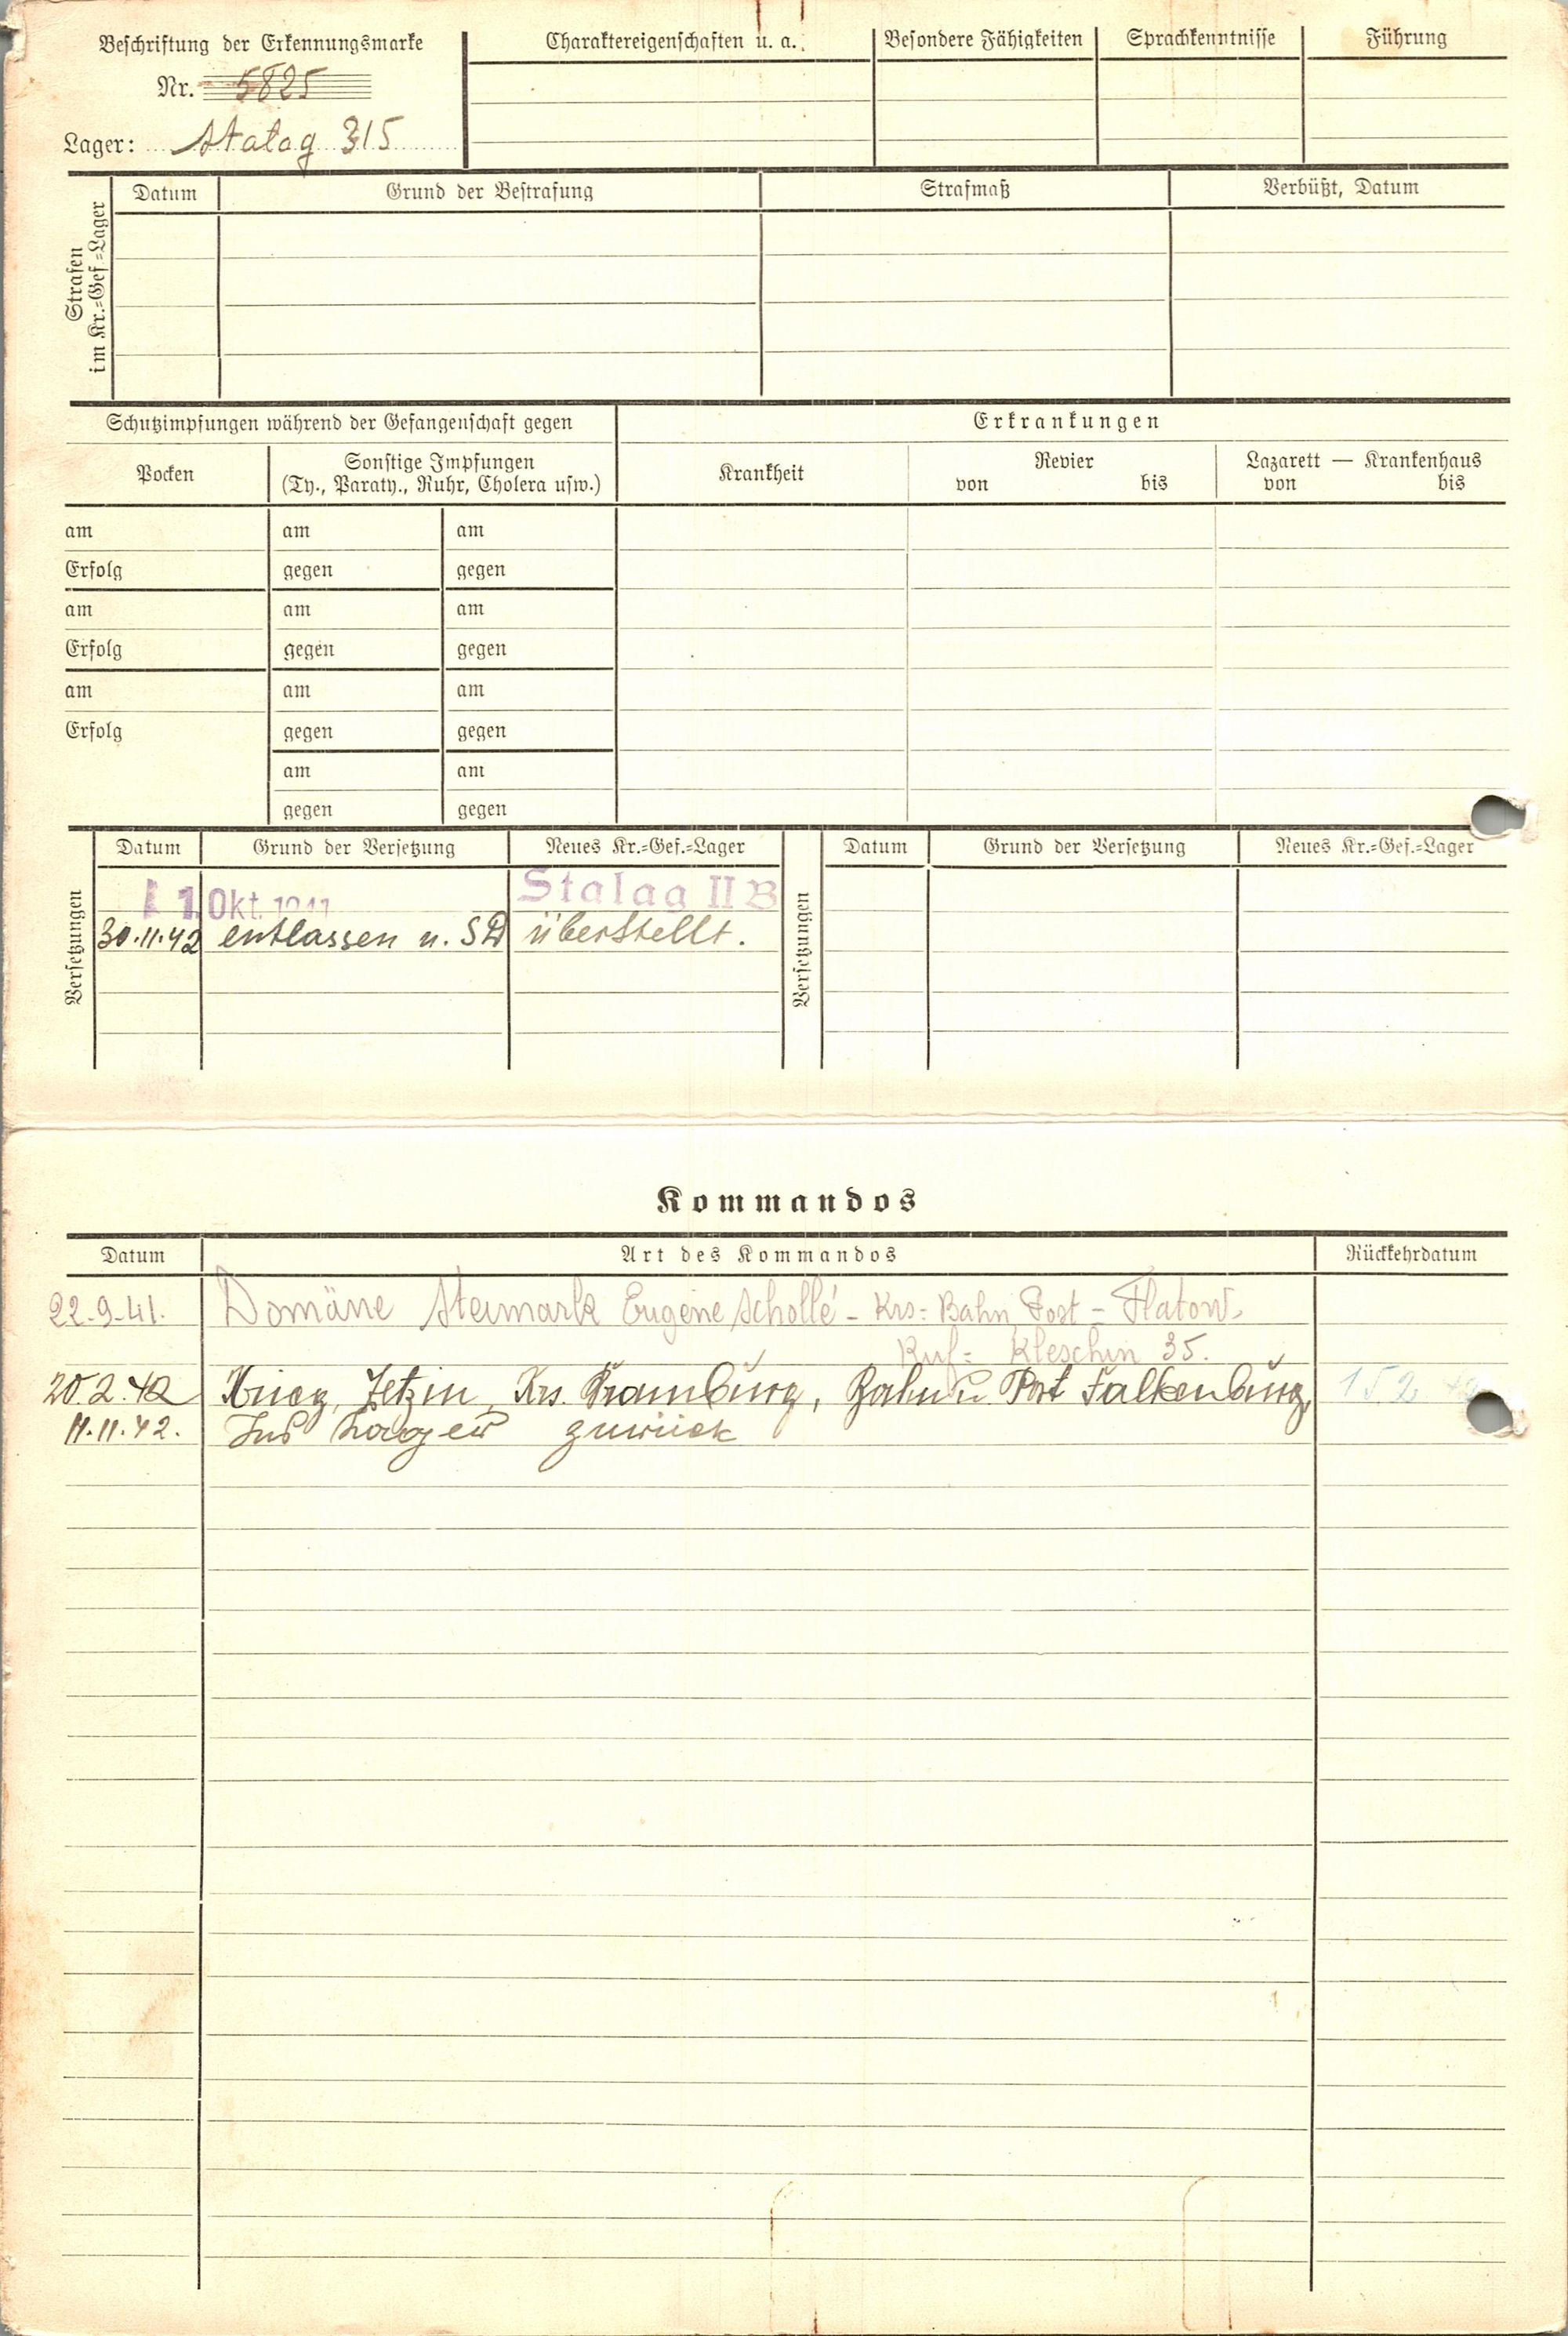 Beschriftung der Erkennungsmarke
Nr. 5825
Lager: Stalag 315
Charaktereigenschaften u. a.
Besondere Fähigkeiten
Sprachkenntnisse
Führung
Strafen
im Kr.=Gef.=Lager
Datum
Grund der Bestrafung
Strafmaß
Verbüßt, Datum
Schutzimpfungen während der Gefangenschaft gegen
Erkrankungen
Pocken
Sonstige Impfungen
(Ty., Paraty., Ruhr, Cholera usw.)
Krankheit
Revier
von bis
Lazarett — Krankenhaus
von bis
am am am
Erfolg gegen gegen
am am am
Erfolg gegen gegen
am am am
Erfolg gegen gegen
am am
gegen gegen
Versetzungen
Datum Grund der Versetzung Neues Kr.=Gef.=Lager
1. Okt. 1941 Stalag II B
30.11.42 entlassen u. SD überstellt.
Versetzungen
Datum Grund der Versetzung Neues Kr.=Gef.=Lager
Kommandos
Datum Art des Kommandos Rückkehrdatum
22.9.41. Domäne Steimark Eugene Schollé - Krs= Bahn Post - Flatow.
Ruf= Kleschin 35.
20.2.42 Krieg, Zetzin, Krs. Dramburg, Bahn u. Post Falkenburg, 15.2.42
11.11.42. Ins Lager zurück